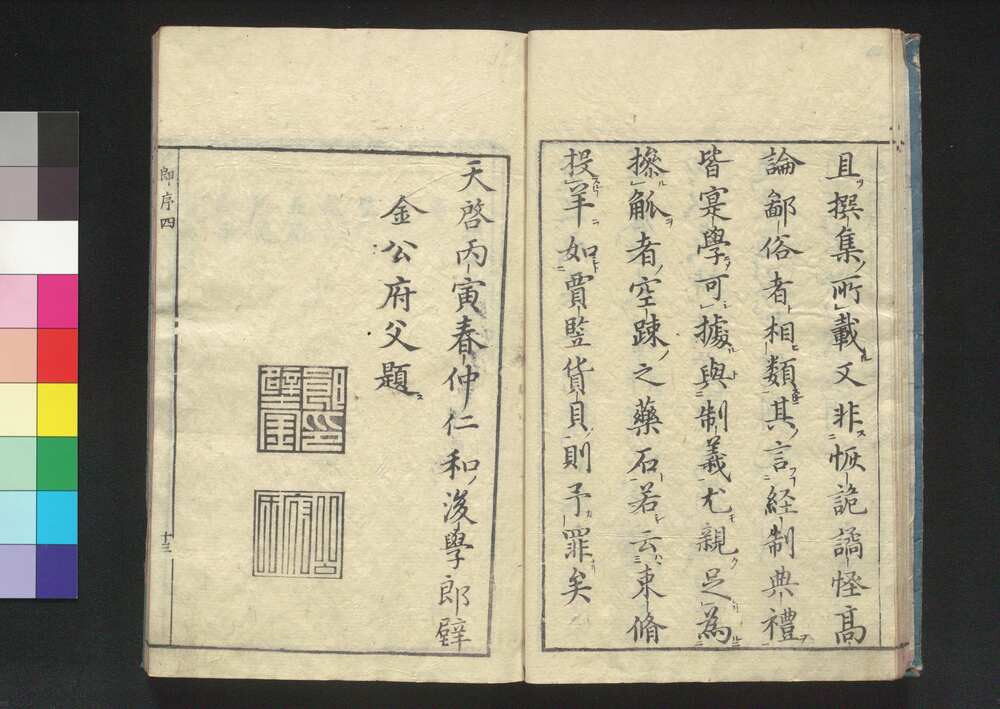 且撰集所載又非恢詭譎怪高
論鄙俗者相類其言経制典禮
皆寔學可據與制義尤親足為
操觚者空踈之藥石若云束脩
投羊如賈豎貨貝則予罪矣
天啓丙寅春仲仁和後學郎壁
金公府父題
郎序四
十三